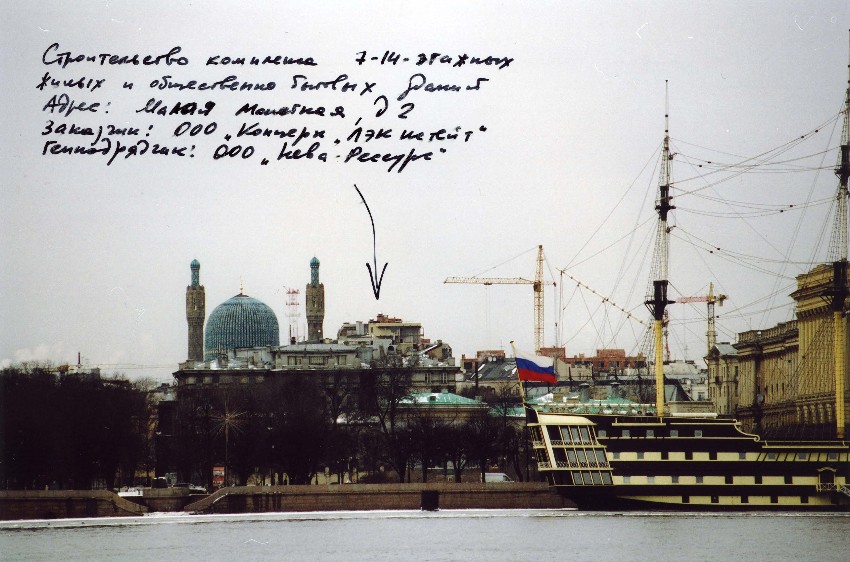 Строительство комплекса 7-14-этажных
жилых и общественно бытовых зданий
Адрес: Малая Монетная, д 2
Заказчик: ООО „Концерн „ЛЭК истейт“
Генподрядчик: ООО „Нева-Ресурс“